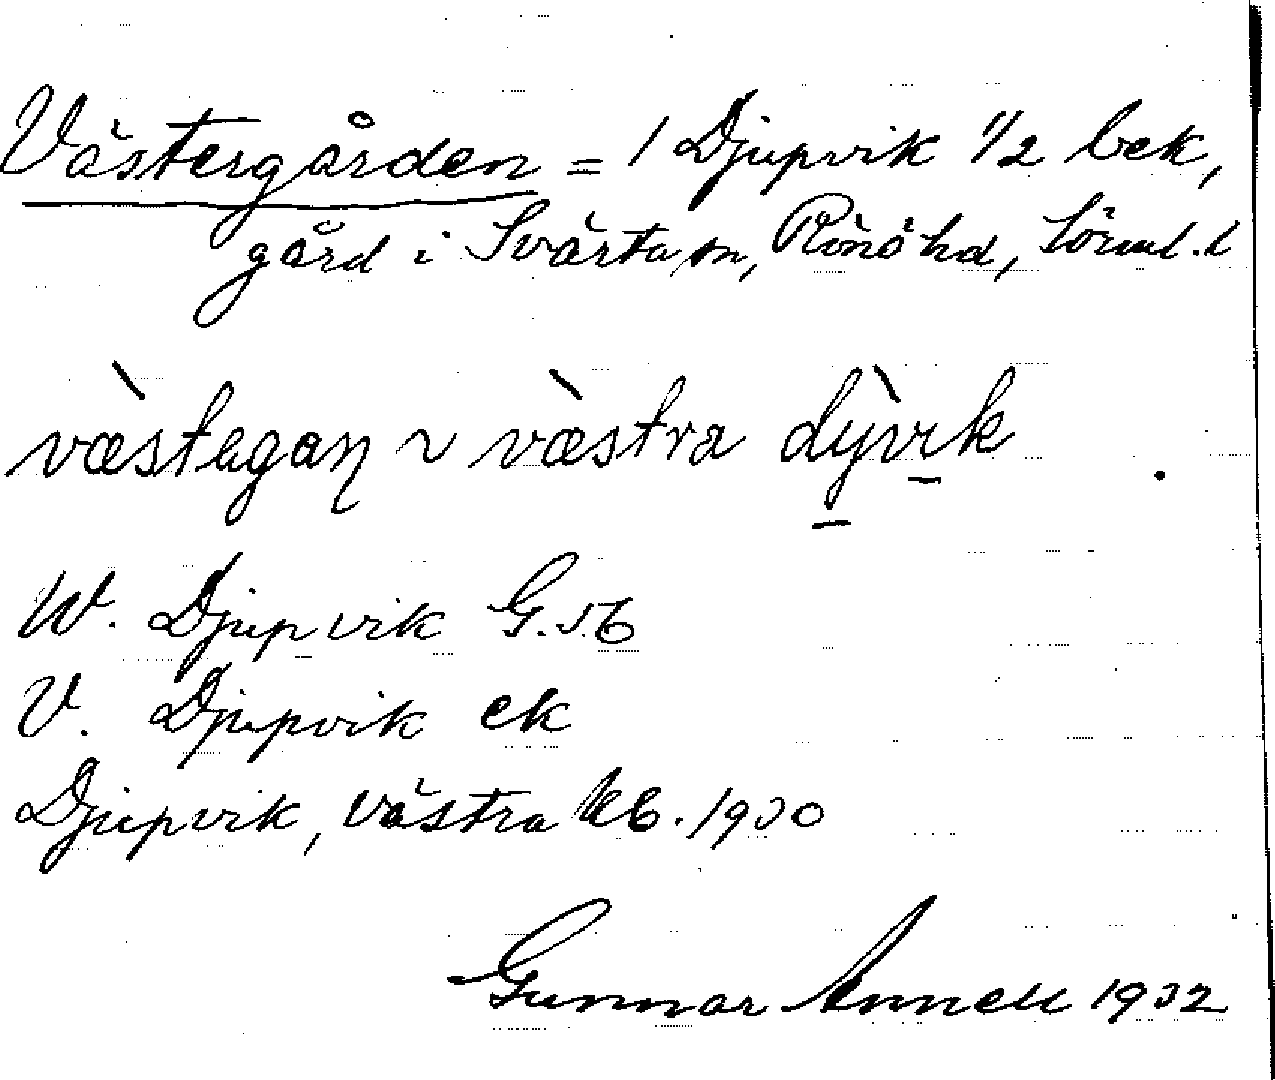 Västergården = 1 Djupvik 1/2 bek,
gård i Svärta sn, Rönö hd, Sörml. l
væstagaŋ ~ væstra dy̱vi̱k
W. Djupvik G.S.B
V. Djupvik ek
Djupvik, västra kb. 1930
Gunnar Annell 1932